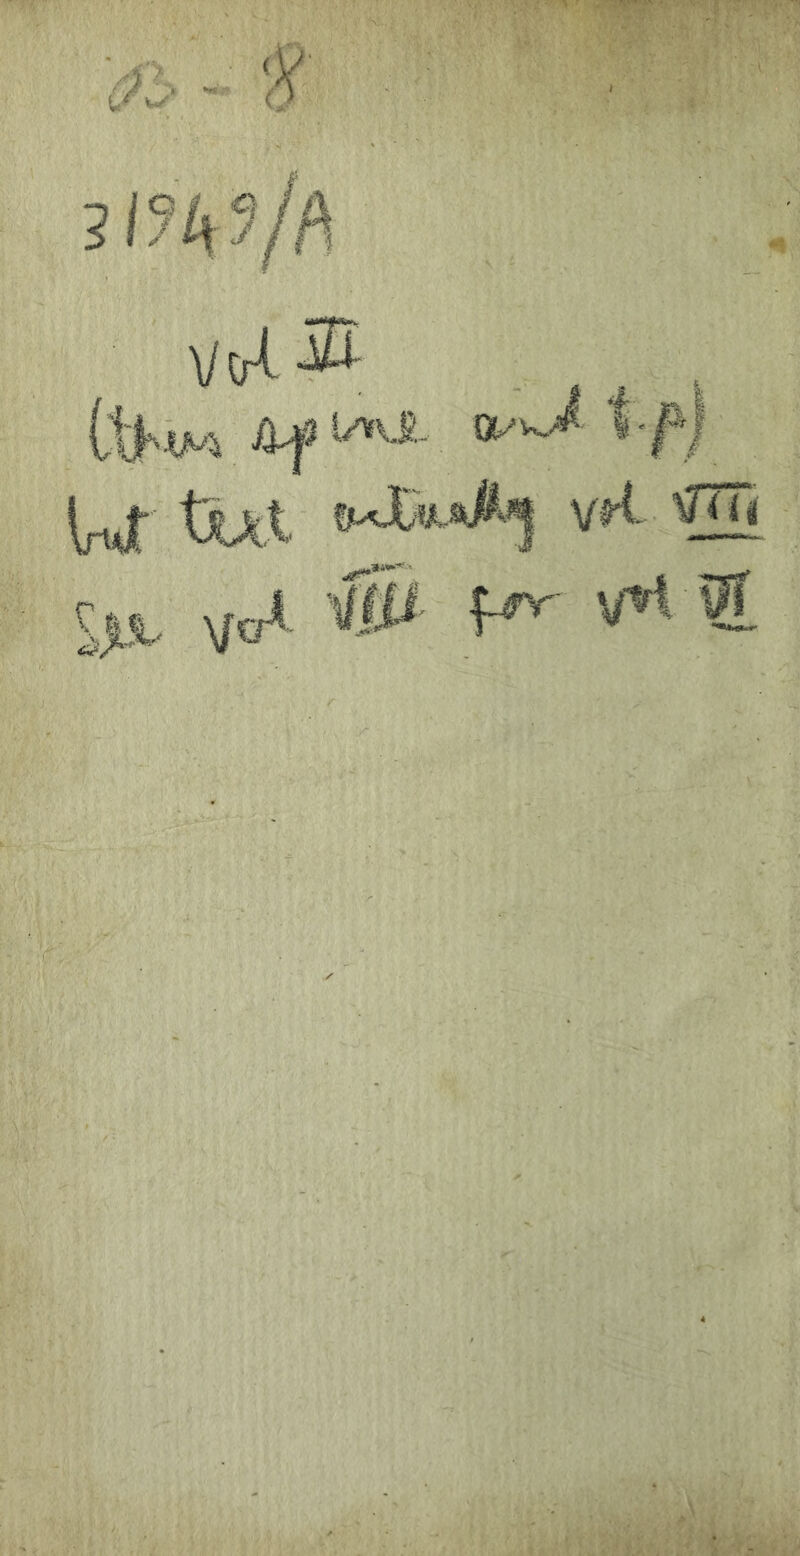 B - 8
31949/A
Vol VI
(thus spine and t.p)
but text actually vol VIII
See vol VIII for vol VI